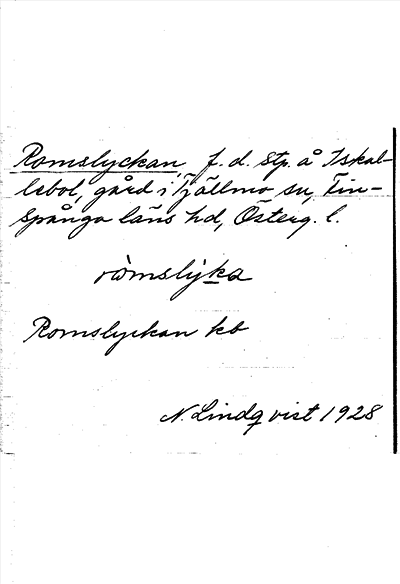 Romslyckan, f. d. stp. å Iskal-
lebol, gård i Tjällmo sn, Fin-
spånga läns hd, Österg. l.
ròmslỳka
Romslyckan kb
N. Lindqvist 1928